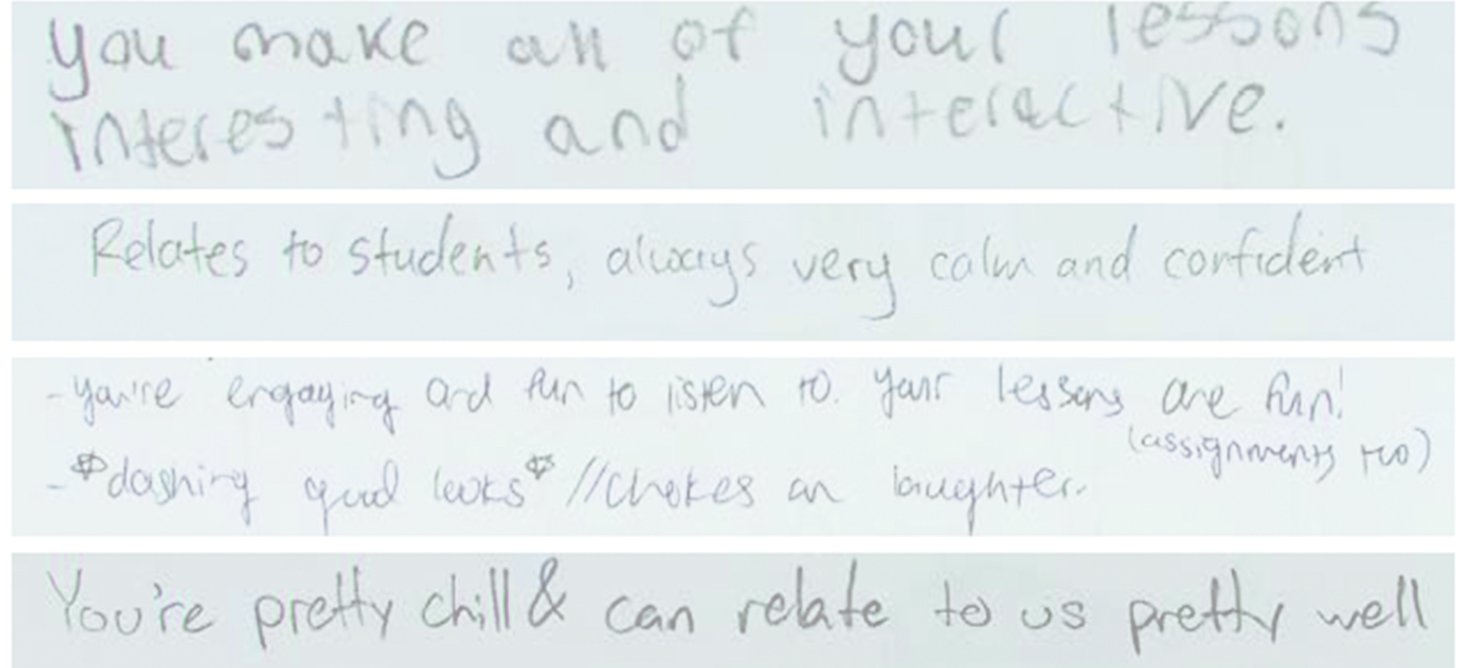 you make all of your lessons
interesting and interactive.
Relates to students, always very calm and confident
- you're engaging and fun to listen to. Your lessons are fun!
(assignments too)
- *dashing good looks* //chokes on laughter.
You're pretty chill & can relate to us pretty well